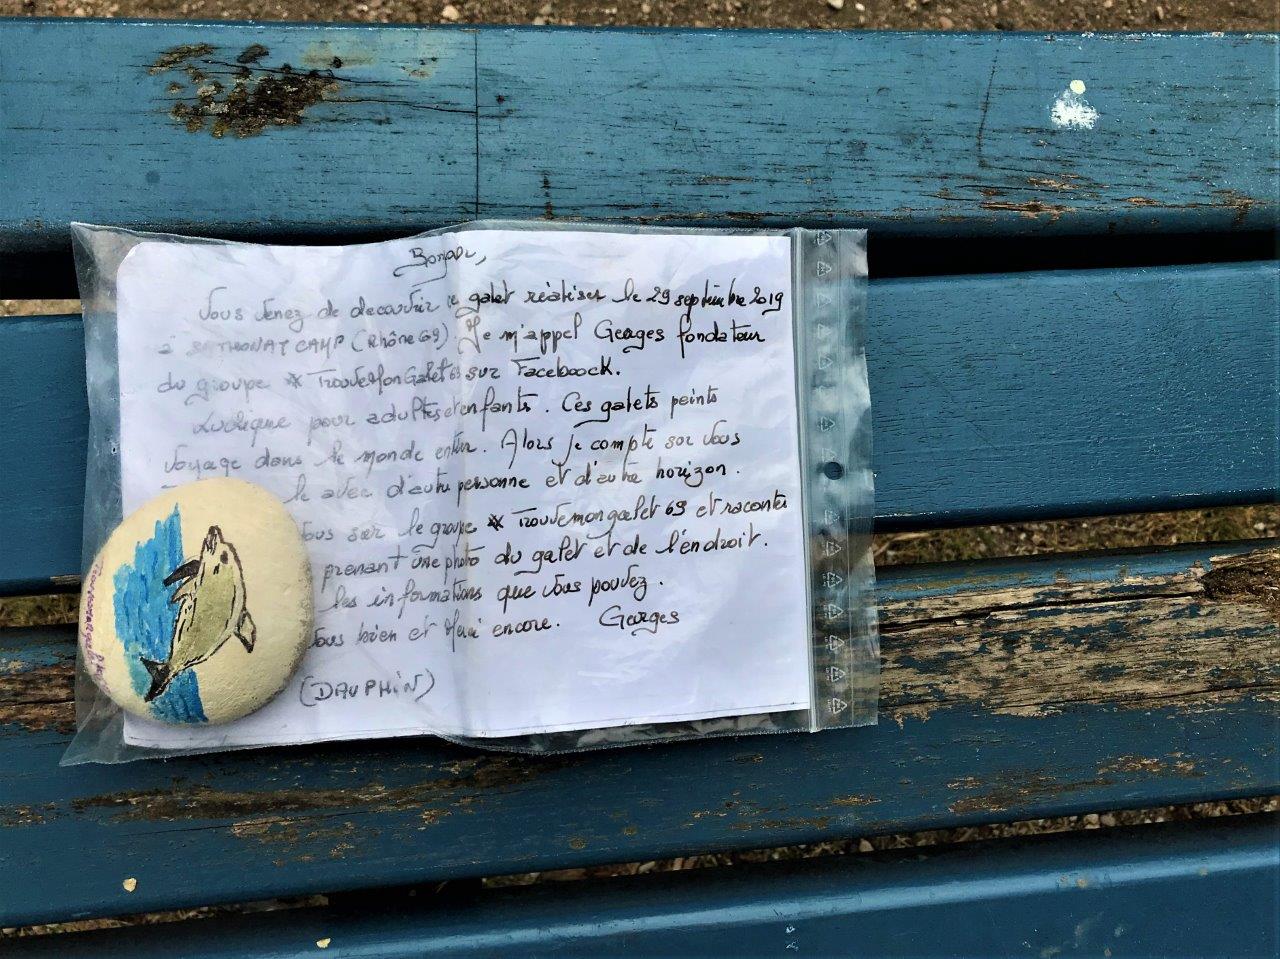 Bonjour,
Vous venez de decouvrir ce galet réaliser le 29 septembre 2019
à SATHONAY CAMP (Rhône 69). Je m'appel Georges fondateur
du groupe * TrouveMonGalet 69 sur Faceboock.
Ludique pour adultes et enfants. Ces galets peints
voyage dans le monde entier. Alors je compte sur vous
le avec d'autre personne et d'autre horizon.
vous sur le groupe * Trouvemongalet 69 et raconter
prenant une photo du galet et de l'endroit.
les informations que vous pouvez.
vous bien et Merci encore. Georges
(DAUPHIN)